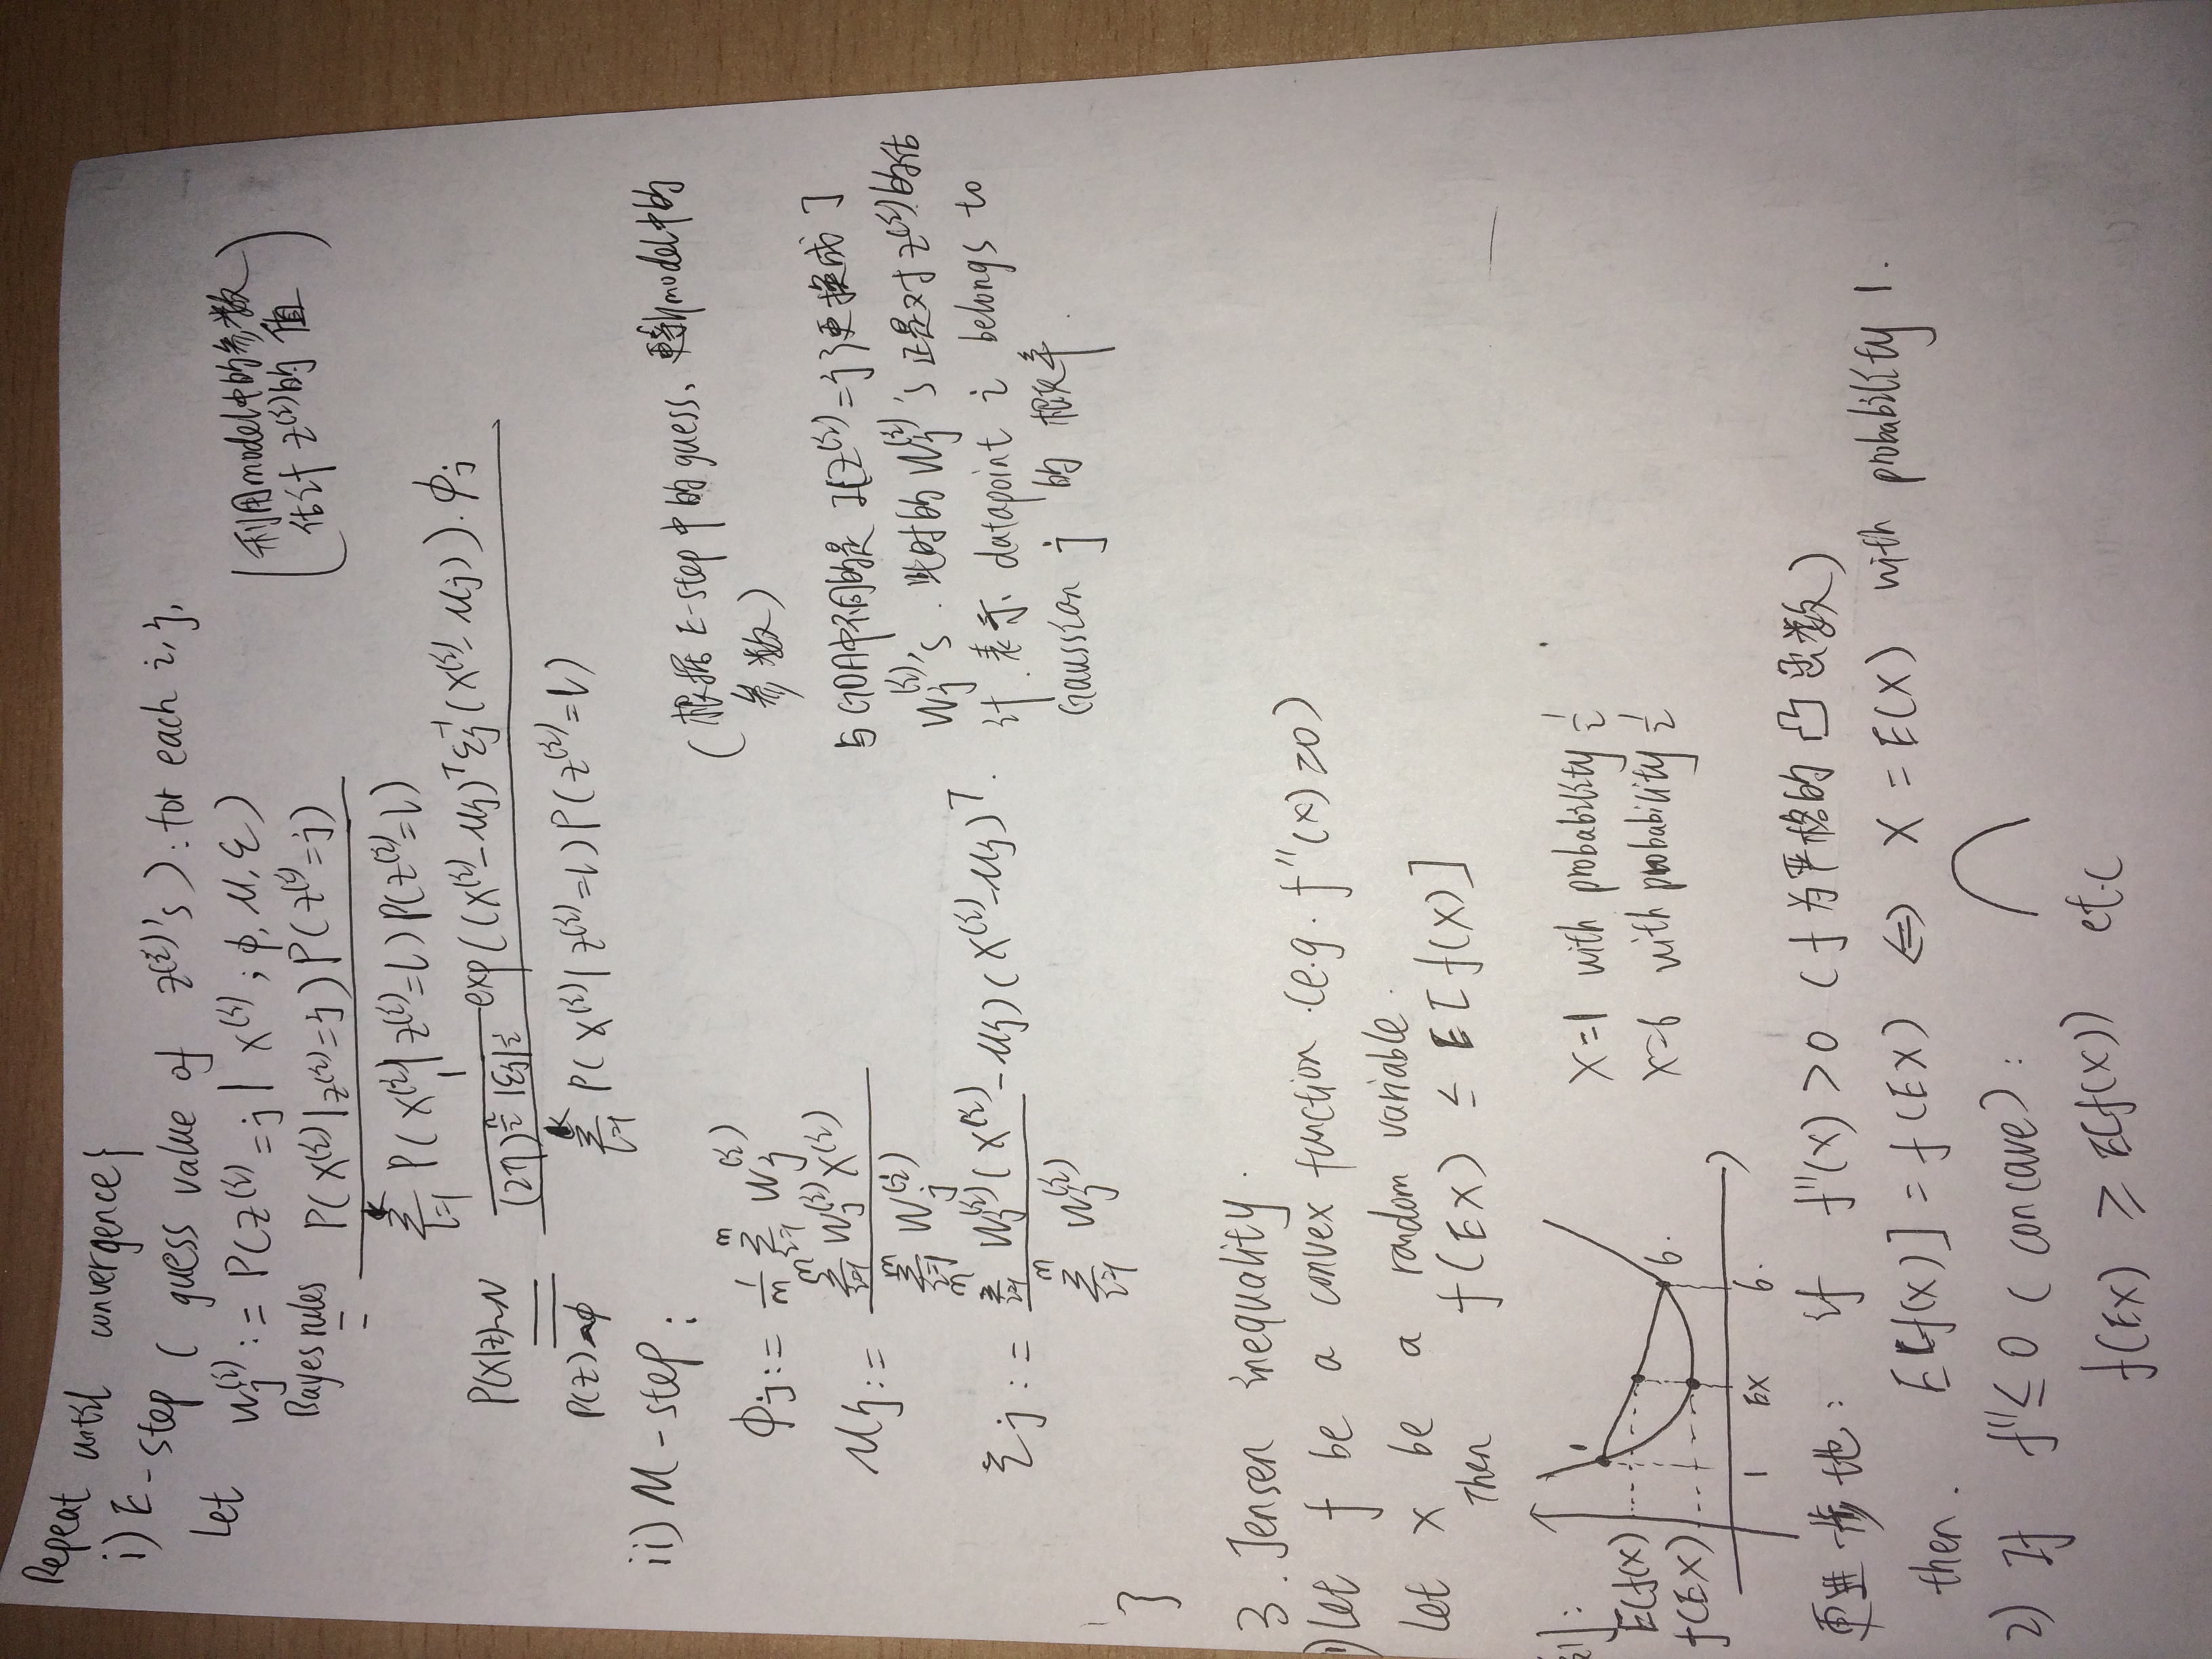 Repeat until convergence{
i) E-step ( guess value of z^(i)'s ): for each i, j,
Let w_j^(i) := P(z^(i) = j | x^(i) ; φ, μ, Σ)
(利用model中的参数
估计 z^(i)的 值)
Bayes rules = P(x^(i)|z^(i)=j) P(z^(i)=j) / Σ_{l=1}^k P(x^(i)|z^(i)=l) P(z^(i)=l)
P(x|z)~N
P(z)~φ
= 1/((2π)^{n/2} |Σj|^{1/2}) exp((x^(i)-μj)^T Σj^{-1} (x^(i)-μj)) · φj / Σ_{l=1}^k P(x^(i)|z^(i)=l) P(z^(i)=l)
ii) M-step :
(根据 E-step 中的 guess, 更新model中的
参数)
φj := 1/m Σ_{i=1}^m w_j^(i)
μj := Σ_{i=1}^m w_j^(i) x^(i) / Σ_{i=1}^m w_j^(i)
Σj := Σ_{i=1}^m w_j^(i) (x^(i)-μj)(x^(i)-μj)^T / Σ_{i=1}^m w_j^(i)
与GDA中不同的是 I{z^(i)=j}更换成了
w_j^(i)'s . 此时的 w_j^(i)'s 正是对 z^(i)的估
计. 表示 datapoint i belongs to
Gaussian j 的 概率.
}
3. Jensen inequality.
1) Let f be a convex function. (e.g. f''(x) ≥0)
Let x be a random variable.
Then f(EX) ≤ E[f(X)]
E(f(X)
f(EX)
1 EX 6.
6.
X=1 with probability 1/2
X=6 with probability 1/2
更进一步地: if f''(x) >0 (f为严格的 凸函数)
then. E[f(X)] = f(EX) ⇔ X = E(X) with probability 1.
2) If f''≤ 0 (concave):
f(EX) ≥ E(f(X)) et.c